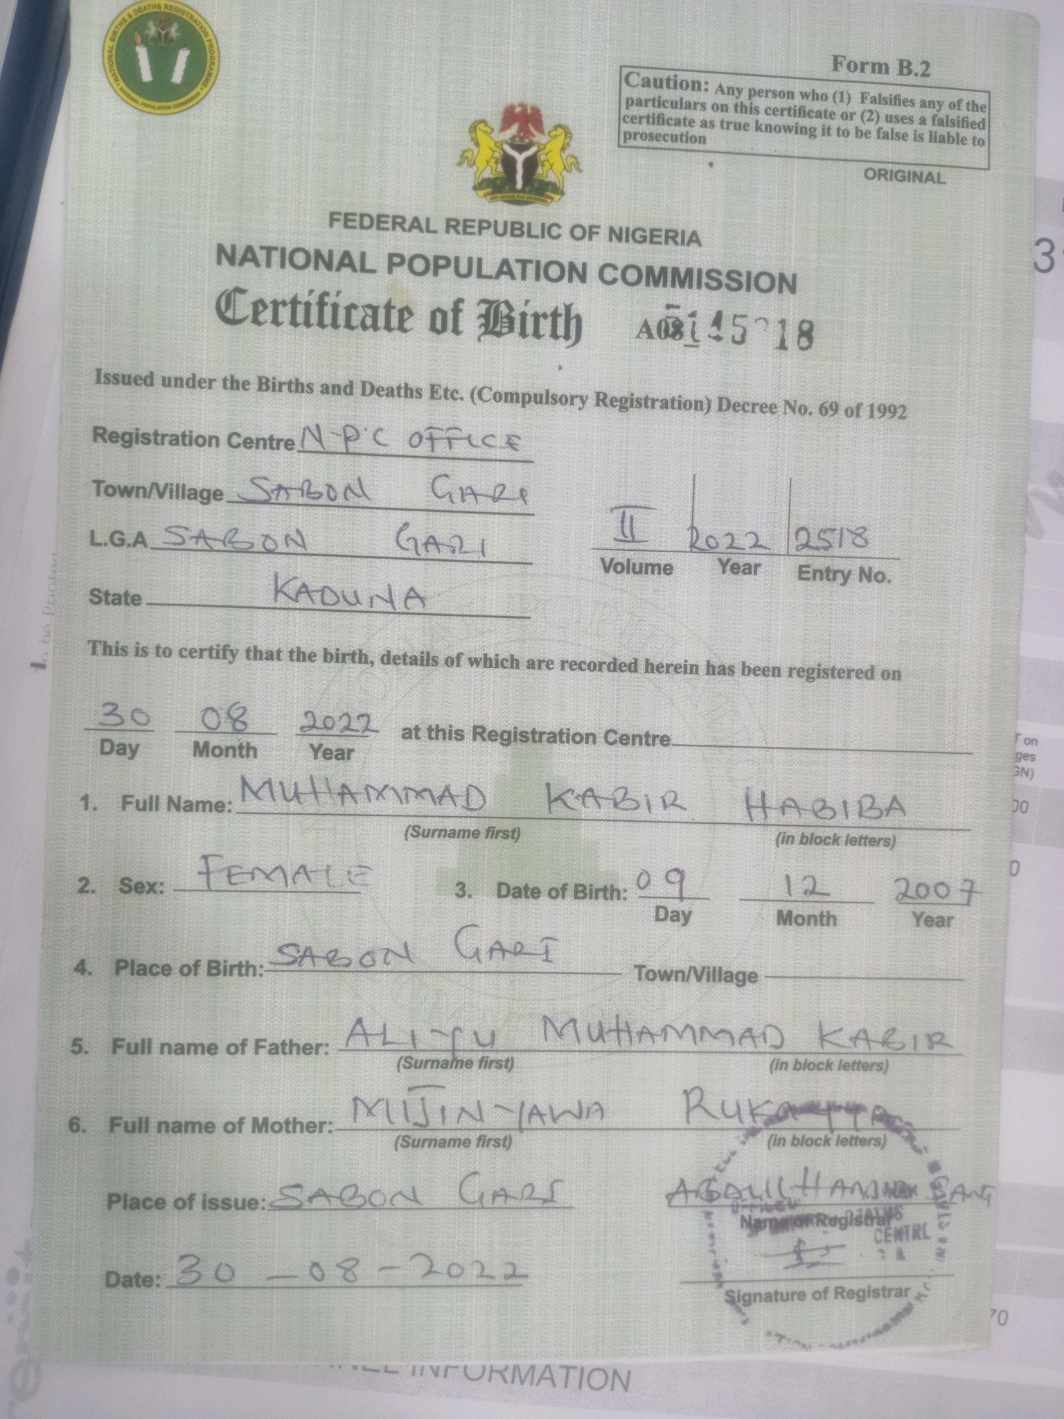 Form B.2
Caution: Any person who (1) Falsifies any of the
particulars on this certificate or (2) uses a falsified
certificate as true knowing it to be false is liable to
prosecution
ORIGINAL
FEDERAL REPUBLIC OF NIGERIA
NATIONAL POPULATION COMMISSION
Certificate of Birth
Issued under the Births and Deaths Etc. (Compulsory Registration) Decree No. 69 of 1992
Registration Centre N.P.C OFFICE
Town/Village SABON GARI
L.G.A SABON GARI
II 2022 2518
Volume Year Entry No.
State KADUNA
This is to certify that the birth, details of which are recorded herein has been registered on
30 08 2022 at this Registration Centre
Day Month Year
1. Full Name: MUHAMMAD KABIR HABIBA
(Surname first) (in block letters)
2. Sex: FEMALE 3. Date of Birth: 09 12 2007
Day Month Year
4. Place of Birth: SABON GARI Town/Village
5. Full name of Father: ALIYU MUHAMMAD KABIR
(Surname first) (in block letters)
6. Full name of Mother: MIJINYAWA RUKAYYA
(Surname first) (in block letters)
Place of issue: SABON GARI
Name of Registrar
CENTRE
Date: 30-08-2022
Signature of Registrar
INFORMATION